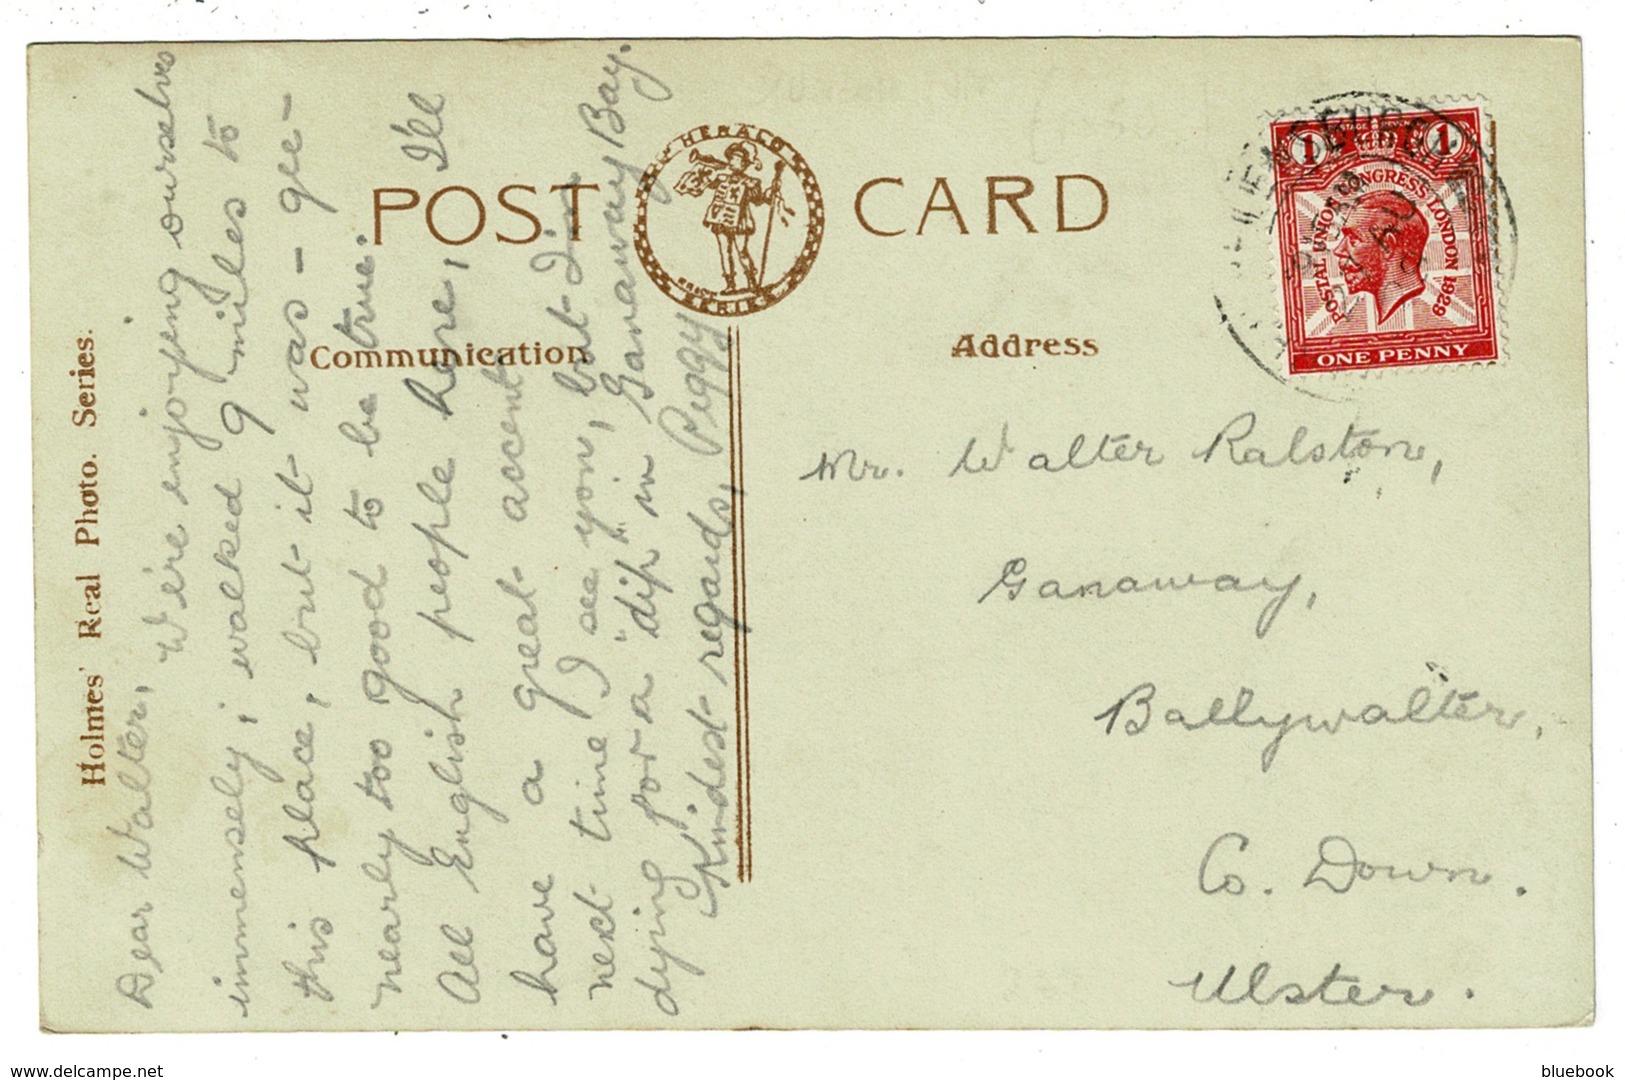 Holmes' Real Photo. Series.
POST CARD
HERALD
SERIES
Communication
Address
Dear Walter, We're enjoying ourselves
immensely; walked 9 miles to
this place, but it was – gee –
nearly too good to be true.
All English people here, I'll
have a great accent
next time I see you, but I'm
dying for a "dip" in Ganaway Bay.
Kindest regards, Peggy
Mr. Walter Ralston,
Ganaway,
Ballywalter,
Co. Down.
Ulster.
1 POSTAGE & REVENUE 1
POSTAL UNION CONGRESS LONDON 1929
ONE PENNY
delcampe.net
bluebook